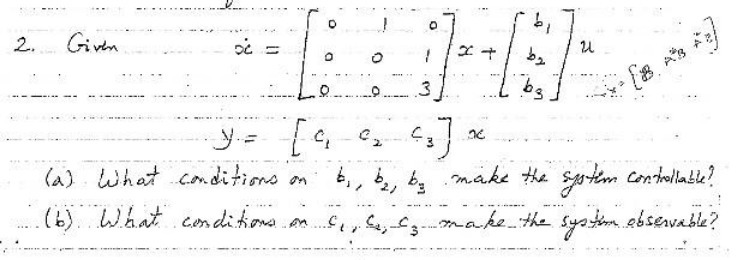 2. Given ẋ = [0 1 0; 0 0 1; 0 0 3] x + [b₁; b₂; b₃] u
y = [c₁ c₂ c₃] x
(a) What conditions on b₁, b₂, b₃ make the system controllable?
(b) What conditions on c₁, c₂, c₃ make the system observable?